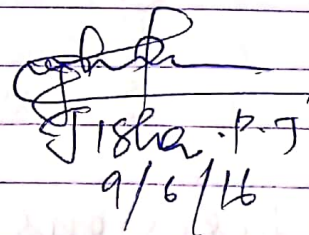 Jisha.P.J
9/6/16